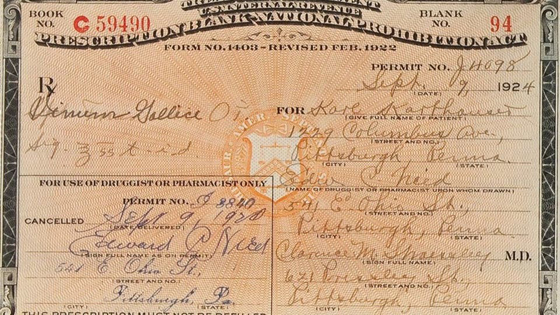 BOOK NO. C 59490
BLANK NO. 94
U.S. INTERNAL REVENUE
PRESCRIPTION BLANK-NATIONAL PROHIBITION ACT
FORM NO. 1403 - REVISED FEB. 1922
PERMIT NO.
Sept. 9 1924
(DATE)
Rx
Gallice
FOR Karl Karthauser
(GIVE FULL NAME OF PATIENT)
1729 Columbus Ave,
(STREET AND NO.)
Pittsburgh, Penna.
(CITY) (STATE)
(NAME OF DRUGGIST OR PHARMACIST UPON WHOM DRAWN)
541 E. Ohio St.,
(STREET AND NO.)
Pittsburgh, Penna
(CITY) (STATE)
Clarence M. M.D.
(SIGN FULL NAME)
621 St.
(STREET AND NO.)
Pittsburgh, Penna
(CITY) (STATE)
FOR USE OF DRUGGIST OR PHARMACIST ONLY
PERMIT NO.
CANCELLED Sept 9, 1924
(DATE DELIVERED)
Edward C
(SIGN FULL NAME AS ON PERMIT)
541 E. Ohio St.,
(STREET AND NO.)
Pittsburgh, Pa.
(CITY) (STATE)
THIS PRESCRIPTION MUST NOT BE REFILLED